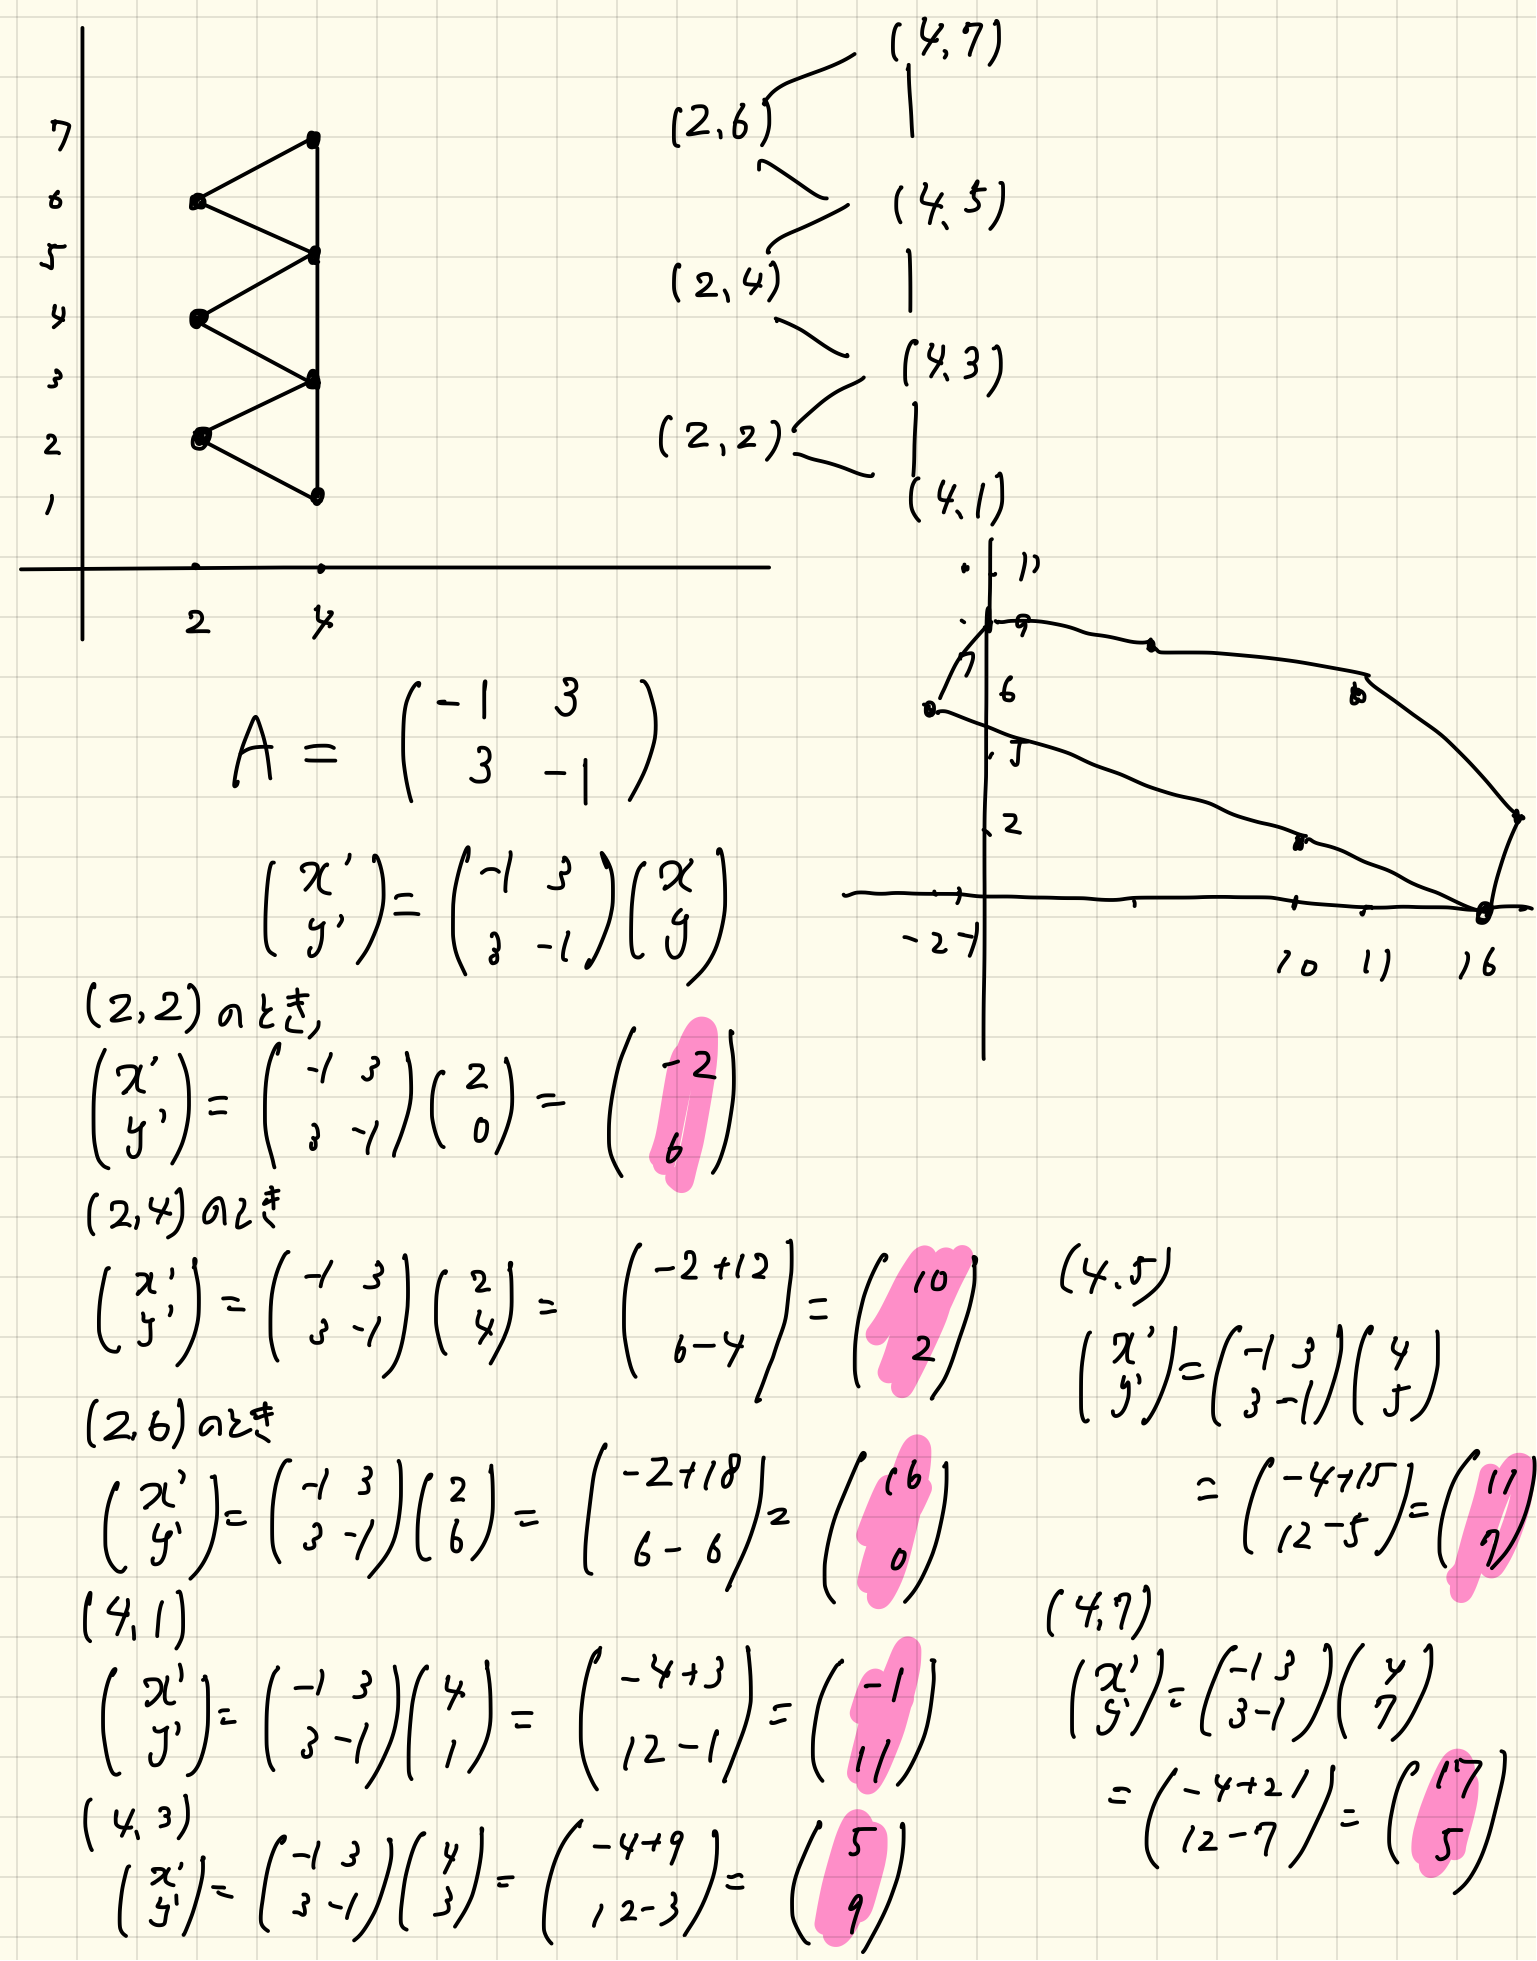 7
6
5
4
3
2
1
2 4
(4,7)
(2,6)
(4,5)
(2,4)
(4,3)
(2,2)
(4,1)
11
9
7
6
5
2
-2 -1 10 11 16
A = (-1 3
3 -1)
(x'
y') = (-1 3
3 -1)(x
y)
(2,2)のとき,
(x'
y') = (-1 3
3 -1)(2
0) = (-2
6)
(2,4)のとき
(x'
y') = (-1 3
3 -1)(2
4) = (-2+12
6-4) = (10
2)
(2,6)のとき
(x'
y') = (-1 3
3 -1)(2
6) = (-2+18
6-6) = (16
0)
(4,1)
(x'
y') = (-1 3
3 -1)(4
1) = (-4+3
12-1) = (-1
11)
(4,3)
(x'
y') = (-1 3
3 -1)(4
3) = (-4+9
12-3) = (5
9)
(4,5)
(x'
y') = (-1 3
3 -1)(4
5)
= (-4+15
12-5) = (11
7)
(4,7)
(x'
y') = (-1 3
3 -1)(4
7)
= (-4+21
12-7) = (17
5)